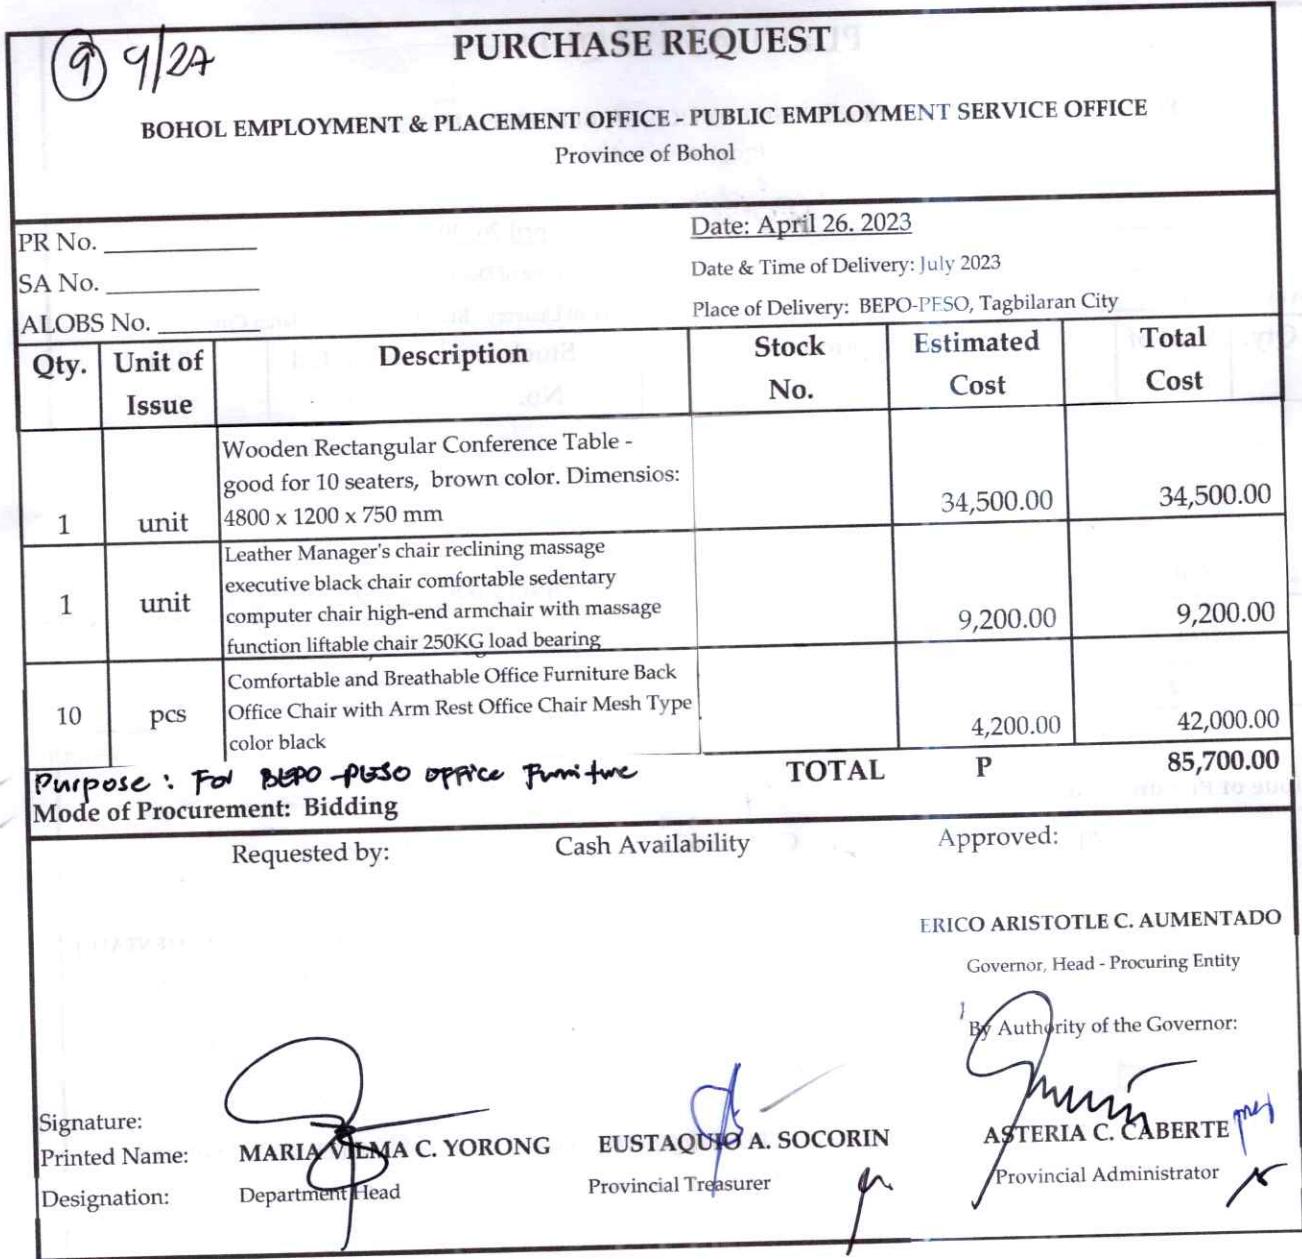 9 9/27
PURCHASE REQUEST
BOHOL EMPLOYMENT & PLACEMENT OFFICE - PUBLIC EMPLOYMENT SERVICE OFFICE
Province of Bohol
PR No. ____________
SA No. ____________
ALOBS No. ____________
Date: April 26. 2023
Date & Time of Delivery: July 2023
Place of Delivery: BEPO-PESO, Tagbilaran City
Qty. Unit of Issue Description Stock No. Estimated Cost Total Cost
Wooden Rectangular Conference Table -
good for 10 seaters, brown color. Dimensios:
1 unit 4800 x 1200 x 750 mm 34,500.00 34,500.00
Leather Manager's chair reclining massage
executive black chair comfortable sedentary
1 unit computer chair high-end armchair with massage 9,200.00 9,200.00
function liftable chair 250KG load bearing
Comfortable and Breathable Office Furniture Back
10 pcs Office Chair with Arm Rest Office Chair Mesh Type 4,200.00 42,000.00
color black
Purpose: For BEPO-PESO office Furniture TOTAL P 85,700.00
Mode of Procurement: Bidding
Requested by: Cash Availability Approved:
ERICO ARISTOTLE C. AUMENTADO
Governor, Head - Procuring Entity
By Authority of the Governor:
Signature:
Printed Name: MARIA VILMA C. YORONG EUSTAQUIO A. SOCORIN ASTERIA C. CABERTE
Designation: Department Head Provincial Treasurer Provincial Administrator